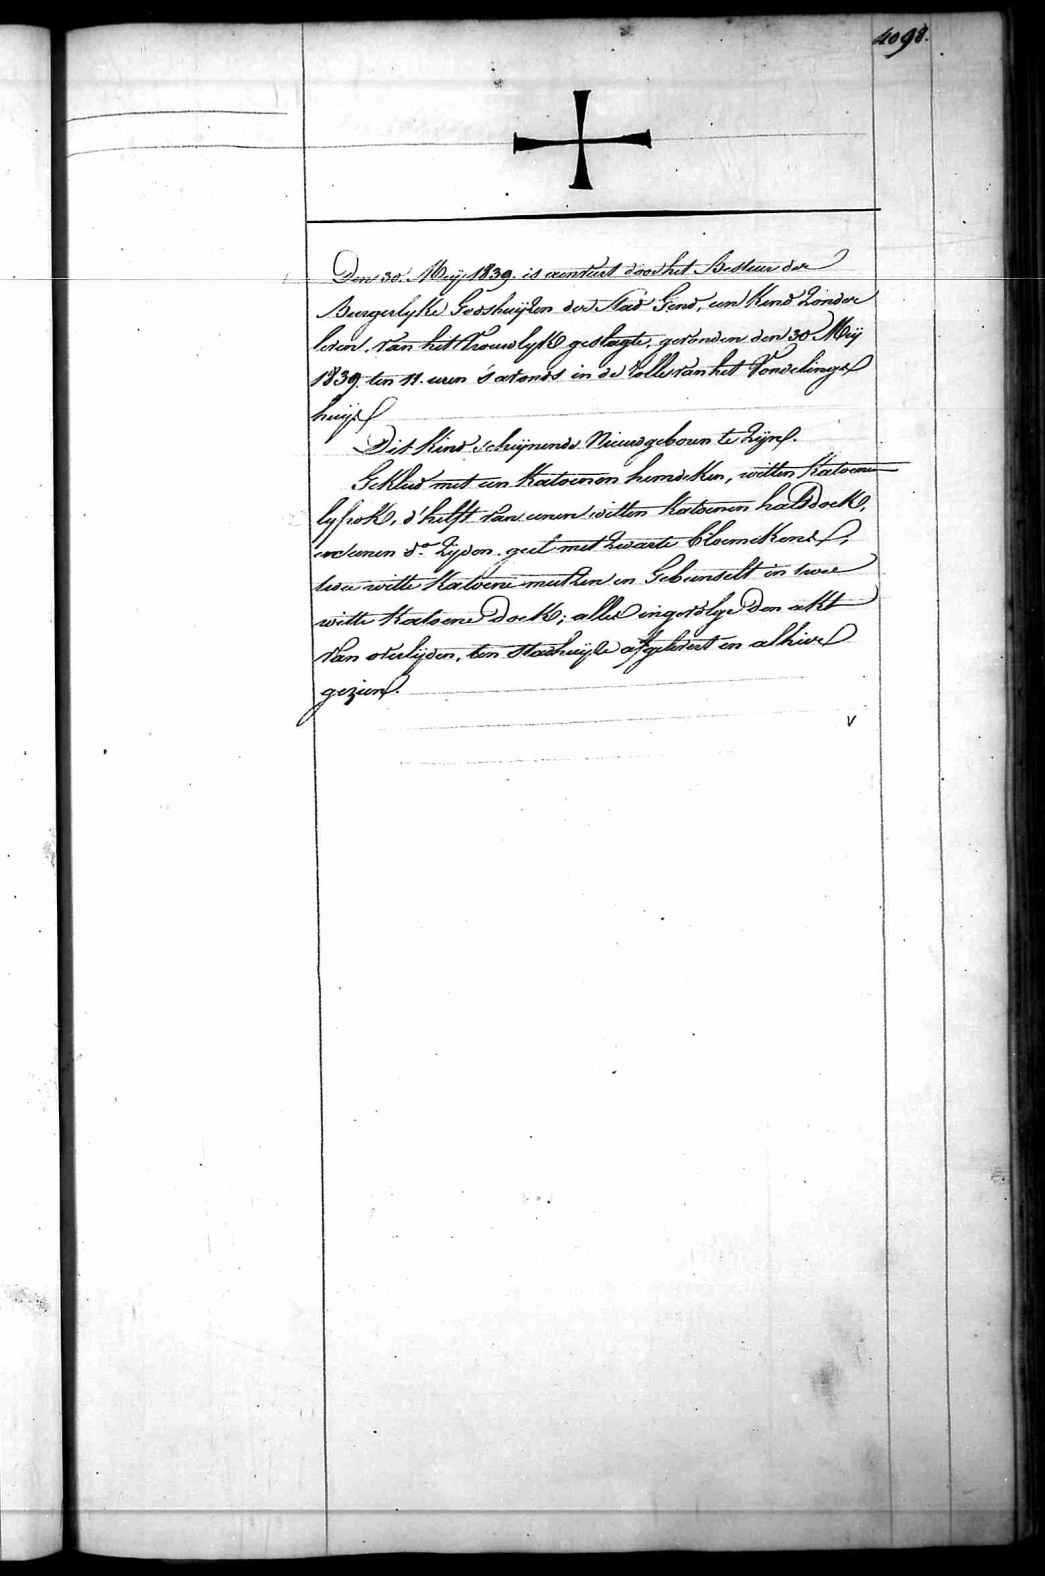 4098.
Den 30. Meij 1839. is aenveert door het Bestuer der
Burgerlyke Godshuijzen der Stad Gend, een Kind Zonder
leven, van het Vrouwlyk geslagte, gevonden den 30 Meij
1839. ten 11. uren 's avonds in de rolle van het Vondelings
huijs
Dit Kind schijnende Nieuwgeboren te Zijn.
Gekleed met een Katoenen hemdeken, witten Katoenen
lyfrok, d'helft van eenen witten Katoenen halsdoek,
en eenen do Zijden geel met Zwarte bloemekens,
twee witte Katoene mutzen en Gebunselt in twee
witte Katoene Doek; alles ingevolge Den akt
van overlijden, ten Stadhuijze afgelevert en alhier
gezien.
v